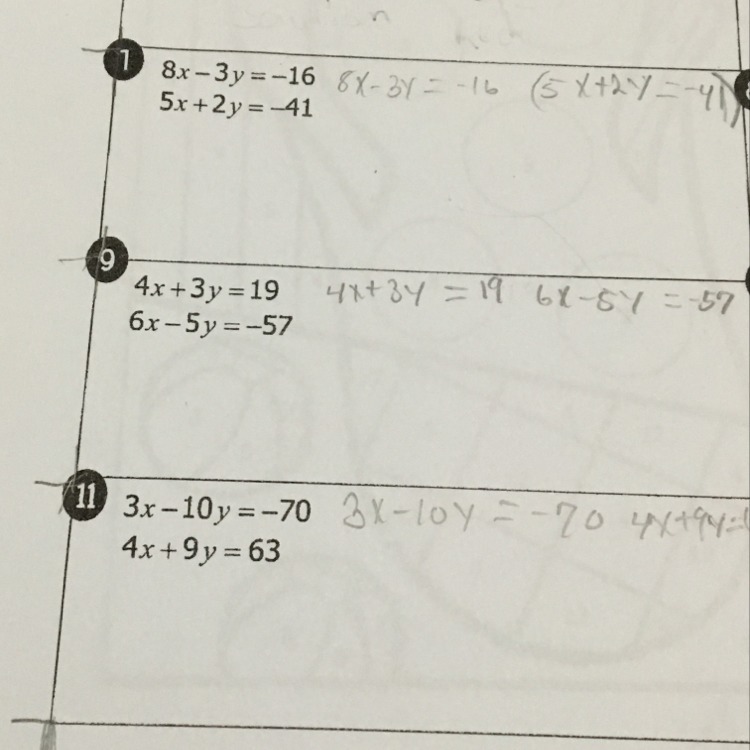 7
8x-3y=-16 8x-3y=-16 (5x+2y=-41)
5x+2y=-41
9
4x+3y=19 4x+3y=19 6x-5y=-57
6x-5y=-57
11
3x-10y=-70 3x-10y=-70 4x+9y=
4x+9y=63